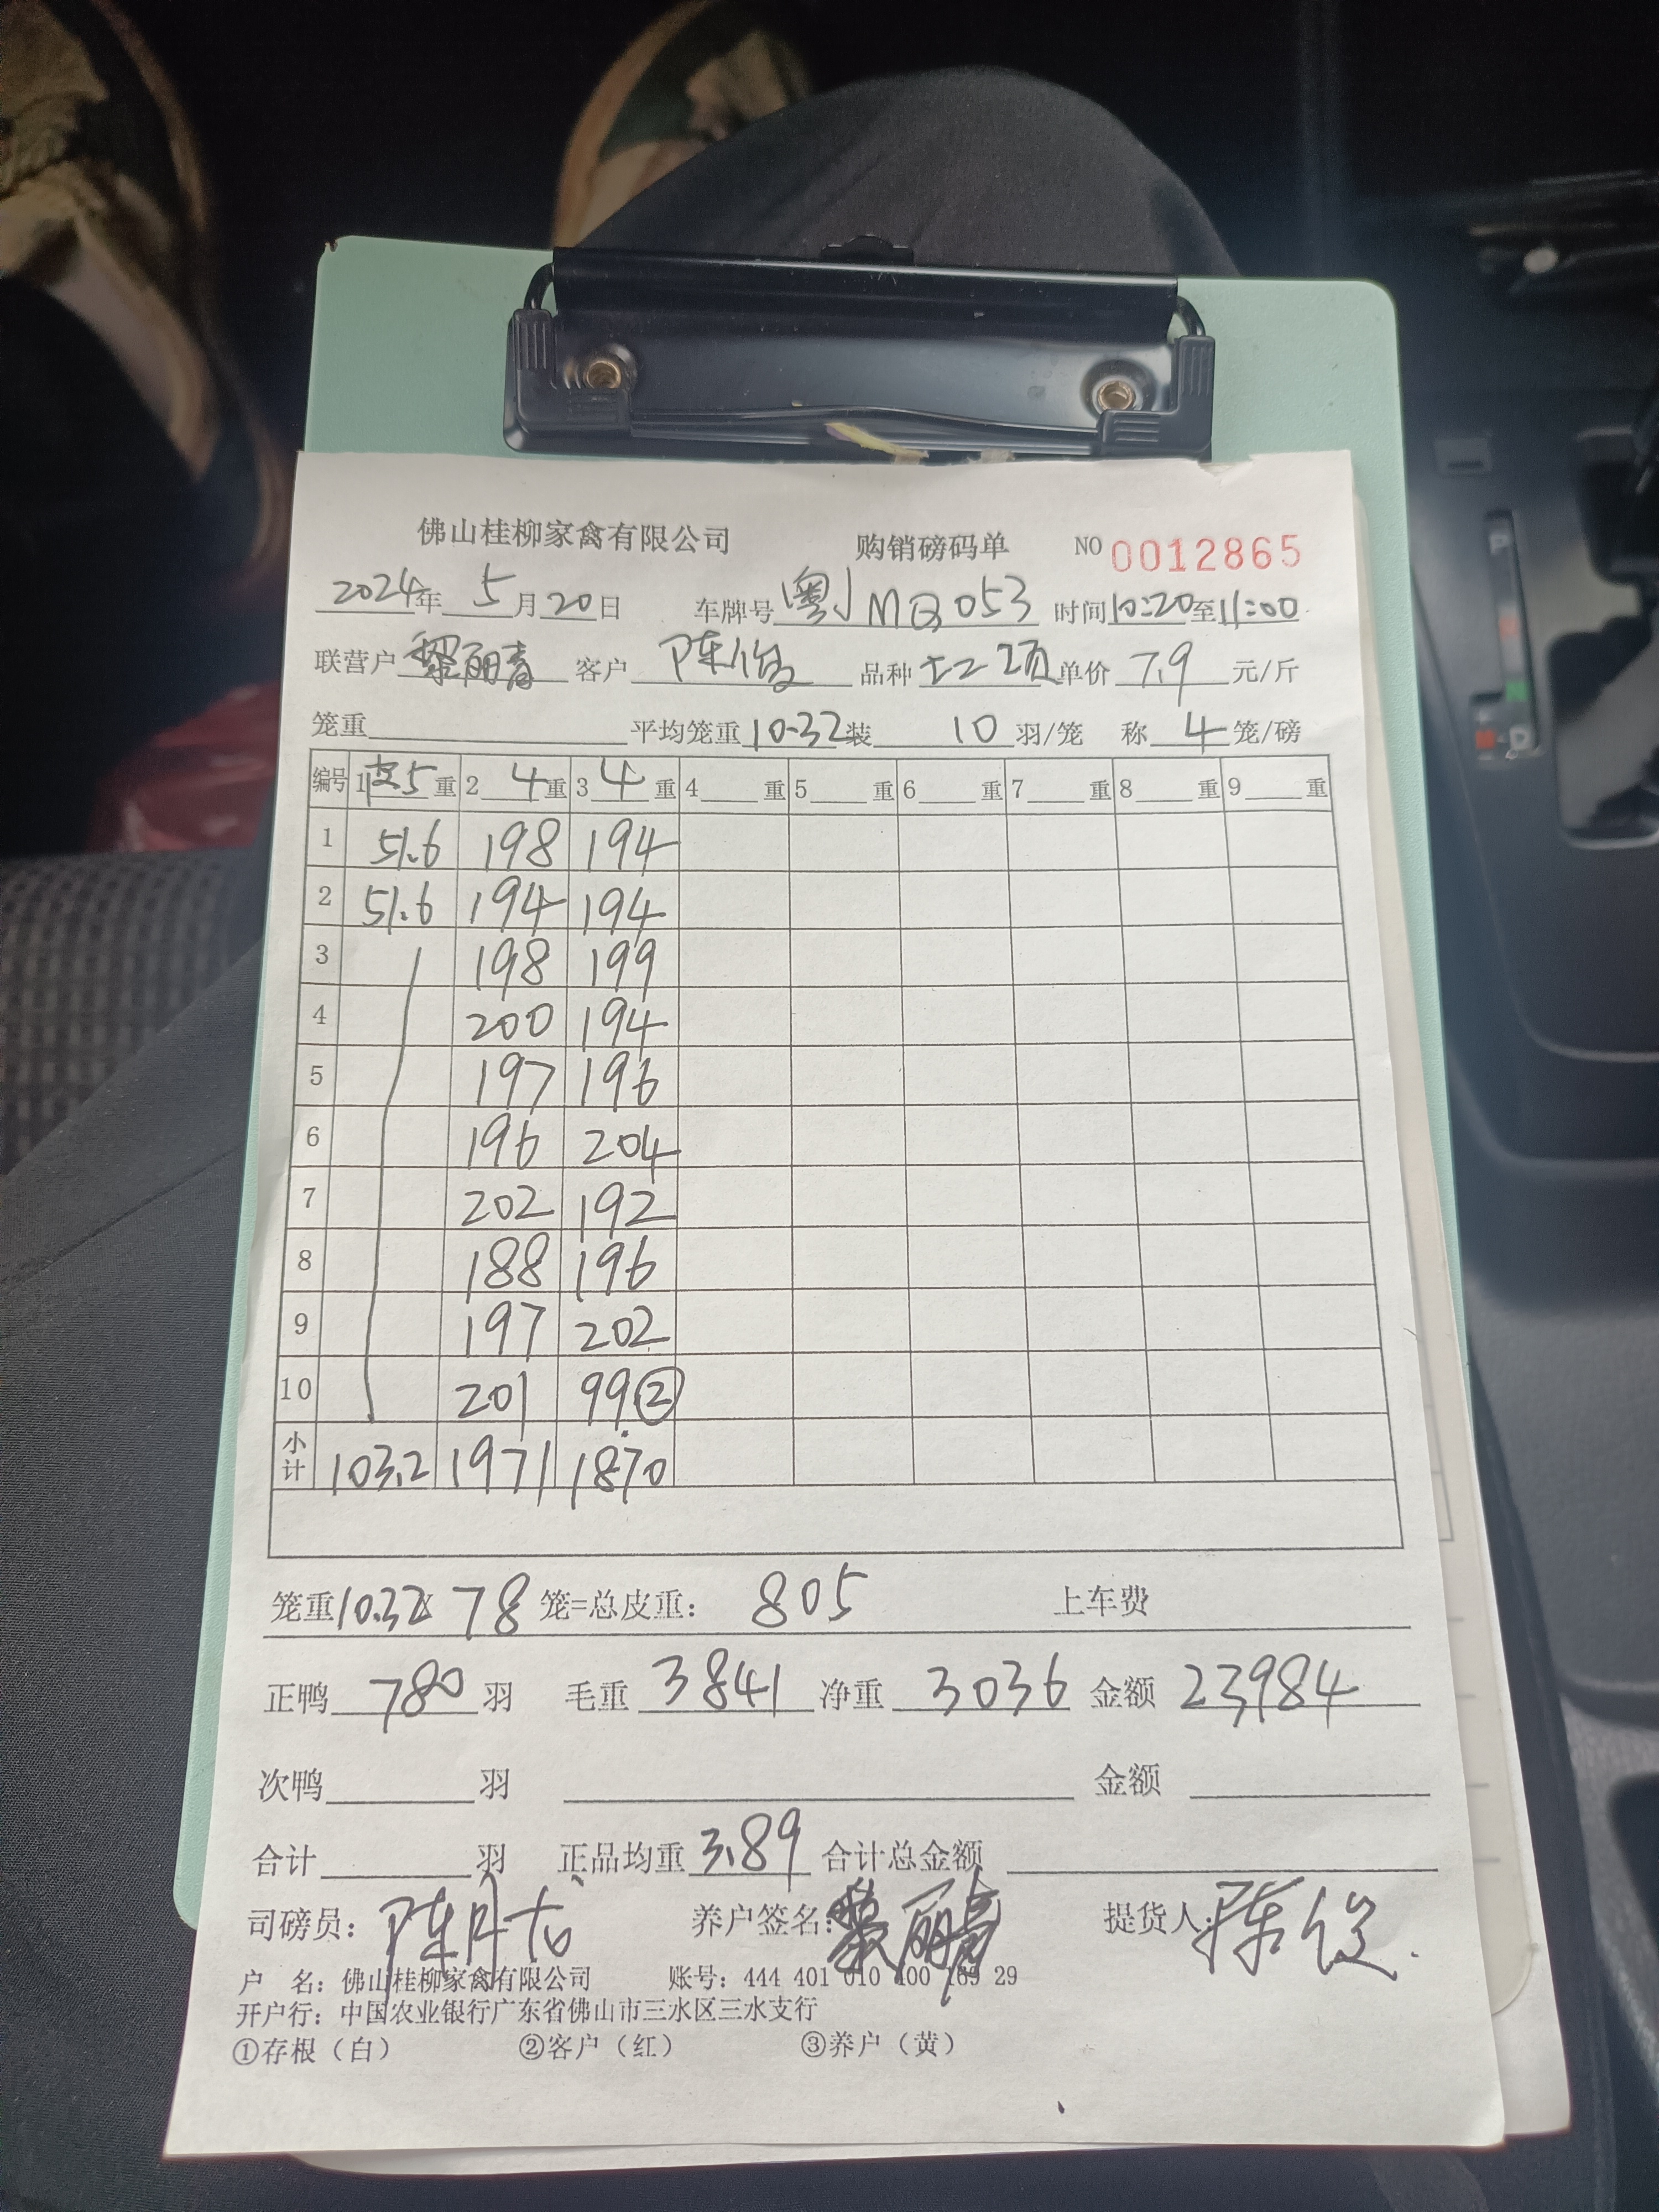 佛山桂柳家禽有限公司 购销磅码单 NO 0012865
2024年 5月20日 车牌号 粤JMQ053 时间10:20至11:00
联营户 黎丽青 客户 陈俊 品种 土二项 单价 7.9 元/斤
笼重 平均笼重 10.32 装 10 羽/笼 称 4 笼/磅
编号 1皮5重 2 4重 3 4重 4 重 5 重 6 重 7 重 8 重 9 重
1 51.6 198 194
2 51.6 194 194
3 198 199
4 200 194
5 197 196
6 196 204
7 202 192
8 188 196
9 197 202
10 201 99②
小计 103.2 1971 1870
笼重10.32x 78 笼=总皮重: 805 上车费
正鸭 780 羽 毛重 3841 净重 3036 金额 23984
次鸭 羽 金额
合计 羽 正品均重 3.89 合计总金额
司磅员: 陈月 养户签名: 黎丽青 提货人: 陈俊
户 名: 佛山桂柳家禽有限公司 账号: 444 401 010 400 169 29
开户行: 中国农业银行广东省佛山市三水区三水支行
①存根（白） ②客户（红） ③养户（黄）
P
N
D